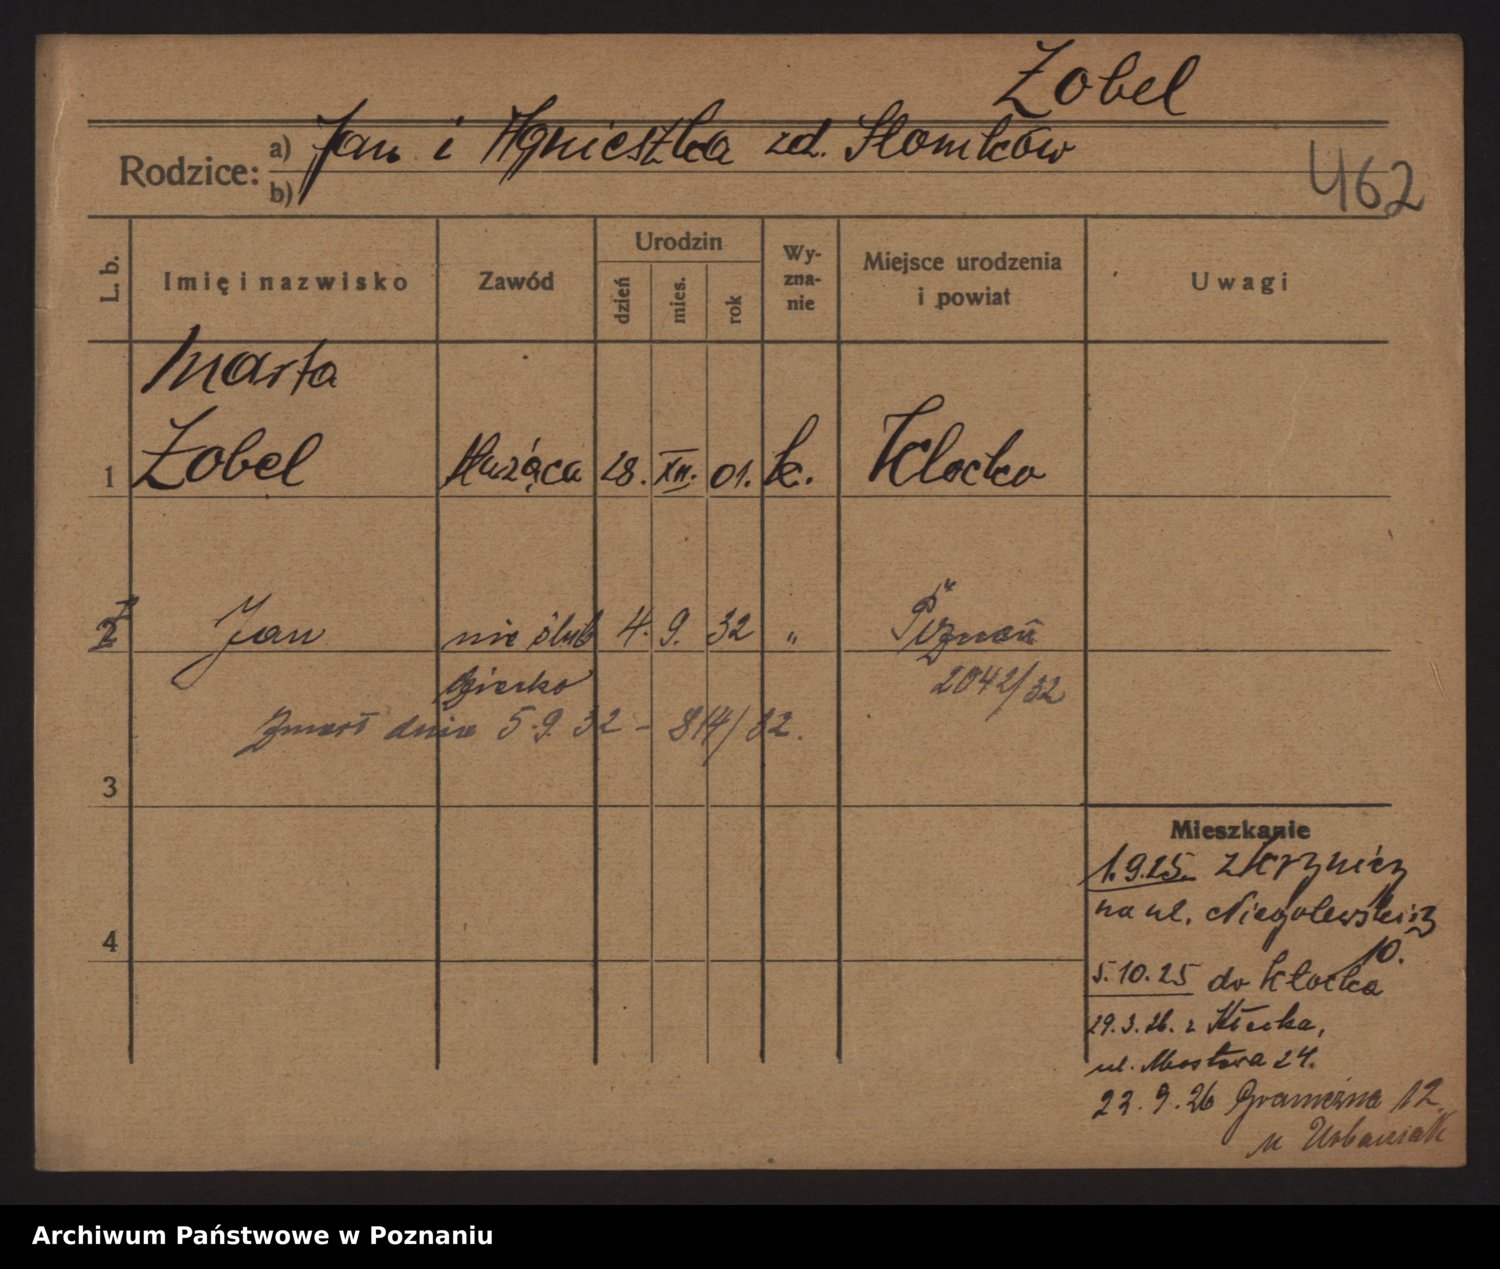 Zobel
Rodzice: a) Jan i Agnieszka zd. Słomków
b)
462
L. b.
Imię i nazwisko
Zawód
Urodzin
dzień
mies.
rok
Wy-
zna-
nie
Miejsce urodzenia
i powiat
Uwagi
Marta
1 Zobel służąca 28. XII. 01. k. Kłocko
2 Jan nie ślub 4. 9. 32 " Poznań
dziecko 2042/32
Zmarł dnia 5.9.32 - 814/32.
3
4
Mieszkanie
1.9.25.
na ul. Niegolewskich
10.
5.10.25 do Kłocka
29.3.26. z Kłecka,
ul. Mostowa 24.
22.9.26 Graniczna 12.
u Urbaniak
Archiwum Państwowe w Poznaniu